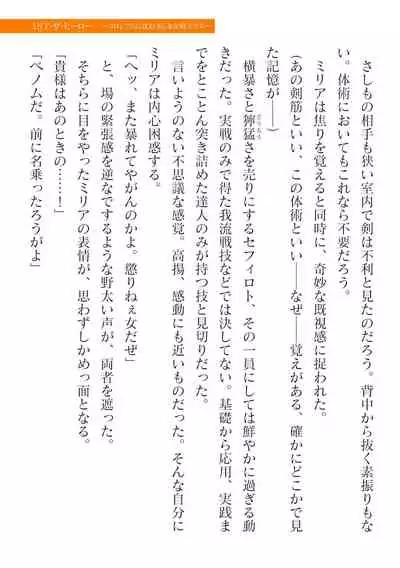 さしもの相手も狭い室内で剣は不利と見たのだろう。背中から抜く素振りもな
い。体術においてもこれなら不要だろう。
ミリアは焦りを覚えると同時に、奇妙な既視感に捉われた。
(あの剣筋といい、この体術といい――なぜ――覚えがある、確かにどこかで見
た記憶が――)
横暴さと獰猛さを売りにするセフィロト、その一員にしては鮮やかに過ぎる動
きだった。実戦のみで得た我流戦技などでは決してない。基礎から応用、実践ま
でをとことん突き詰めた達人のみが持つ技と見切りだった。
言いようのない不思議な感覚。高揚、感動にも近いものだった。そんな自分に
ミリアは内心困惑する。
「へッ、また暴れてやがんのかよ。懲りねぇ女だぜ」
と、場の緊張感を逆なでするような野太い声が、両者を遮った。
そちらに目をやったミリアの表情が、思わずしかめっ面となる。
「貴様はあのときの……！」
「ベノムだ。前に名乗ったろうがよ」